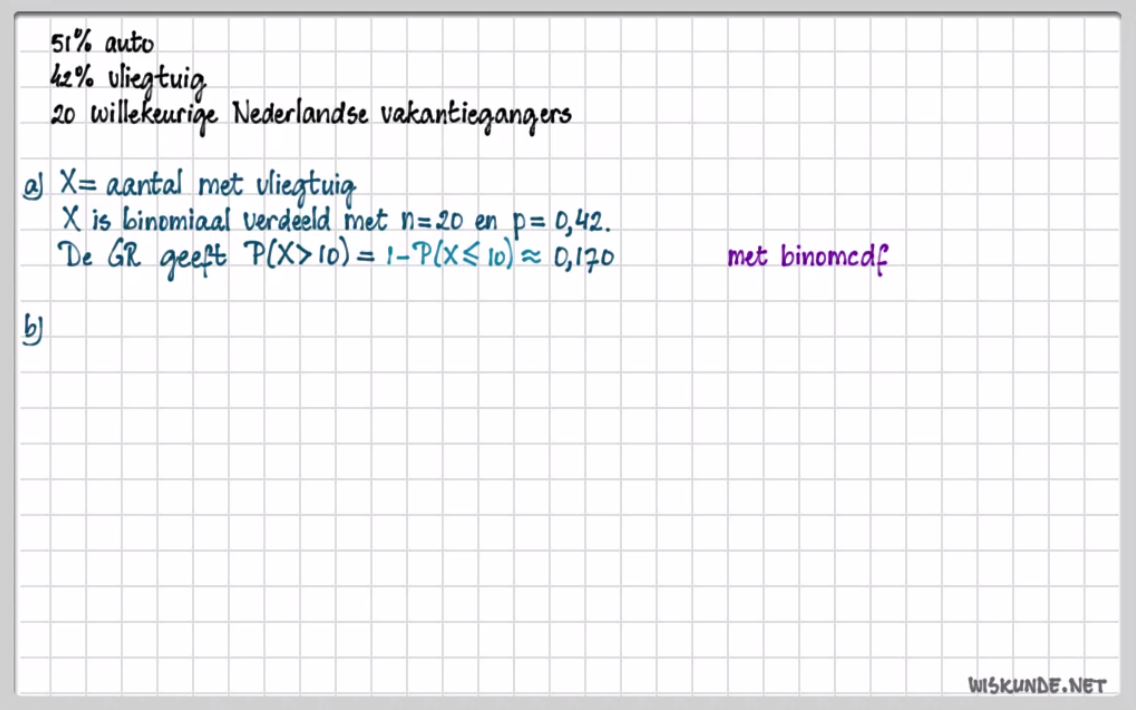 51% auto
42% vliegtuig
20 willekeurige Nederlandse vakantiegangers
a) X = aantal met vliegtuig
X is binomiaal verdeeld met n=20 en p= 0,42.
De GR geeft P(X>10) = 1-P(X≤10) ≈ 0,170 met binomcdf
b)
WISKUNDE.NET